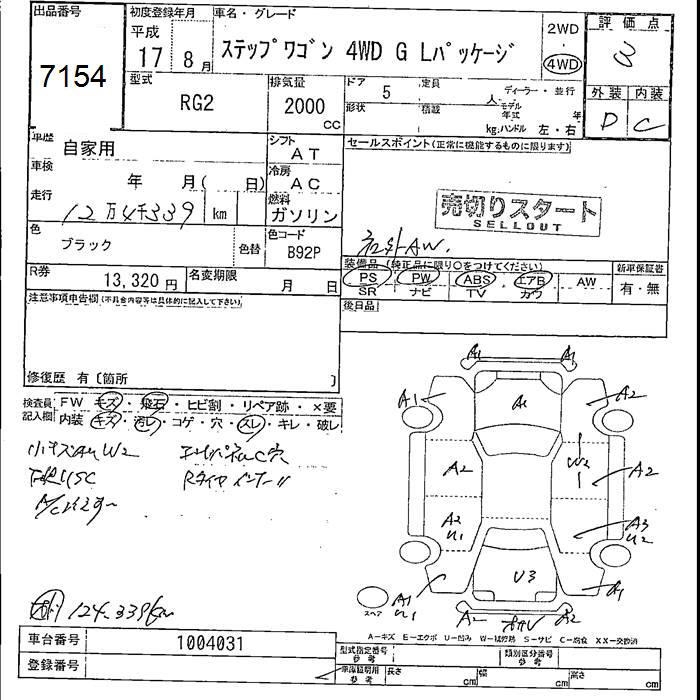 出品番号
7154
初度登録年月
平成
17 8月
車名・グレード
ステップワゴン 4WD G Lパッケージ
2WD
・
4WD
評価点
3
外装 内装
D C
型式
RG2
排気量
2000
CC
ドア 5
定員
人
形状
積載
kg
ディーラー・並行
モデル年式
年
ハンドル 左・右
車歴
自家用
車検
年 月( 日)
走行
12万4千339 km
シフト
AT
冷房
AC
燃料
ガソリン
色
ブラック
色替
色コード
B92P
セールスポイント(正常に機能するものに限ります)
売切りスタート
SELLOUT
社外AW.
装備品(純正品に限り○をつけてください)
PS PW ABS エアB AW
SR ナビ TV カワ
新車保証書
有・無
後日品
R券
13,320円
名変期限
月 日
注意事項申告欄(不具合内容等は具体的に記入して下さい)
修復歴 有〔箇所 〕
検査員記入欄
FW キズ・飛石・ヒビ割・リペア跡・×要
内装 キズ・汚レ・コゲ・穴・スレ・キレ・破レ
小キズAUW2
下廻りSC
Rタイヤ
124.339km
A1 A1
A1 A2
A1
A2 W2 A2
A2 U1
A3 U2
U3
A1 U1
A1
A2 A2
スペア
A-キズ E-エクボ U-凹み W-補修跡 S-サビ C-腐食 XX-交換済
車台番号
1004031
登録番号
型式指定番号
参考
類別区分番号
参考
車庫証明用
参考
長さ cm
幅 cm
高さ cm